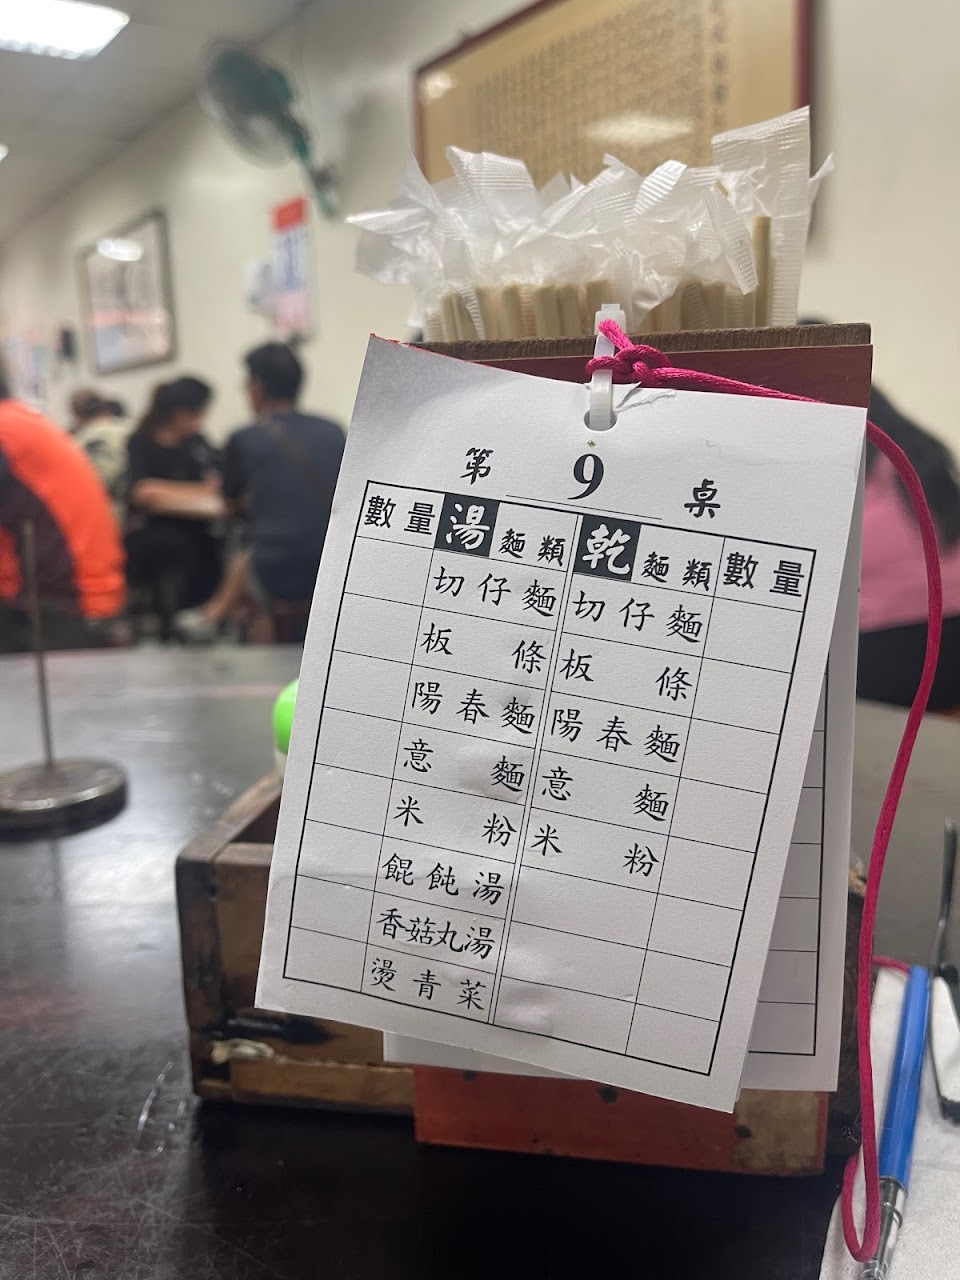 第 9 桌
數量 湯麵類 乾麵類 數量
切仔麵 切仔麵
板條 板條
陽春麵 陽春麵
意麵 意麵
米粉 米粉
餛飩湯
香菇丸湯
燙青菜